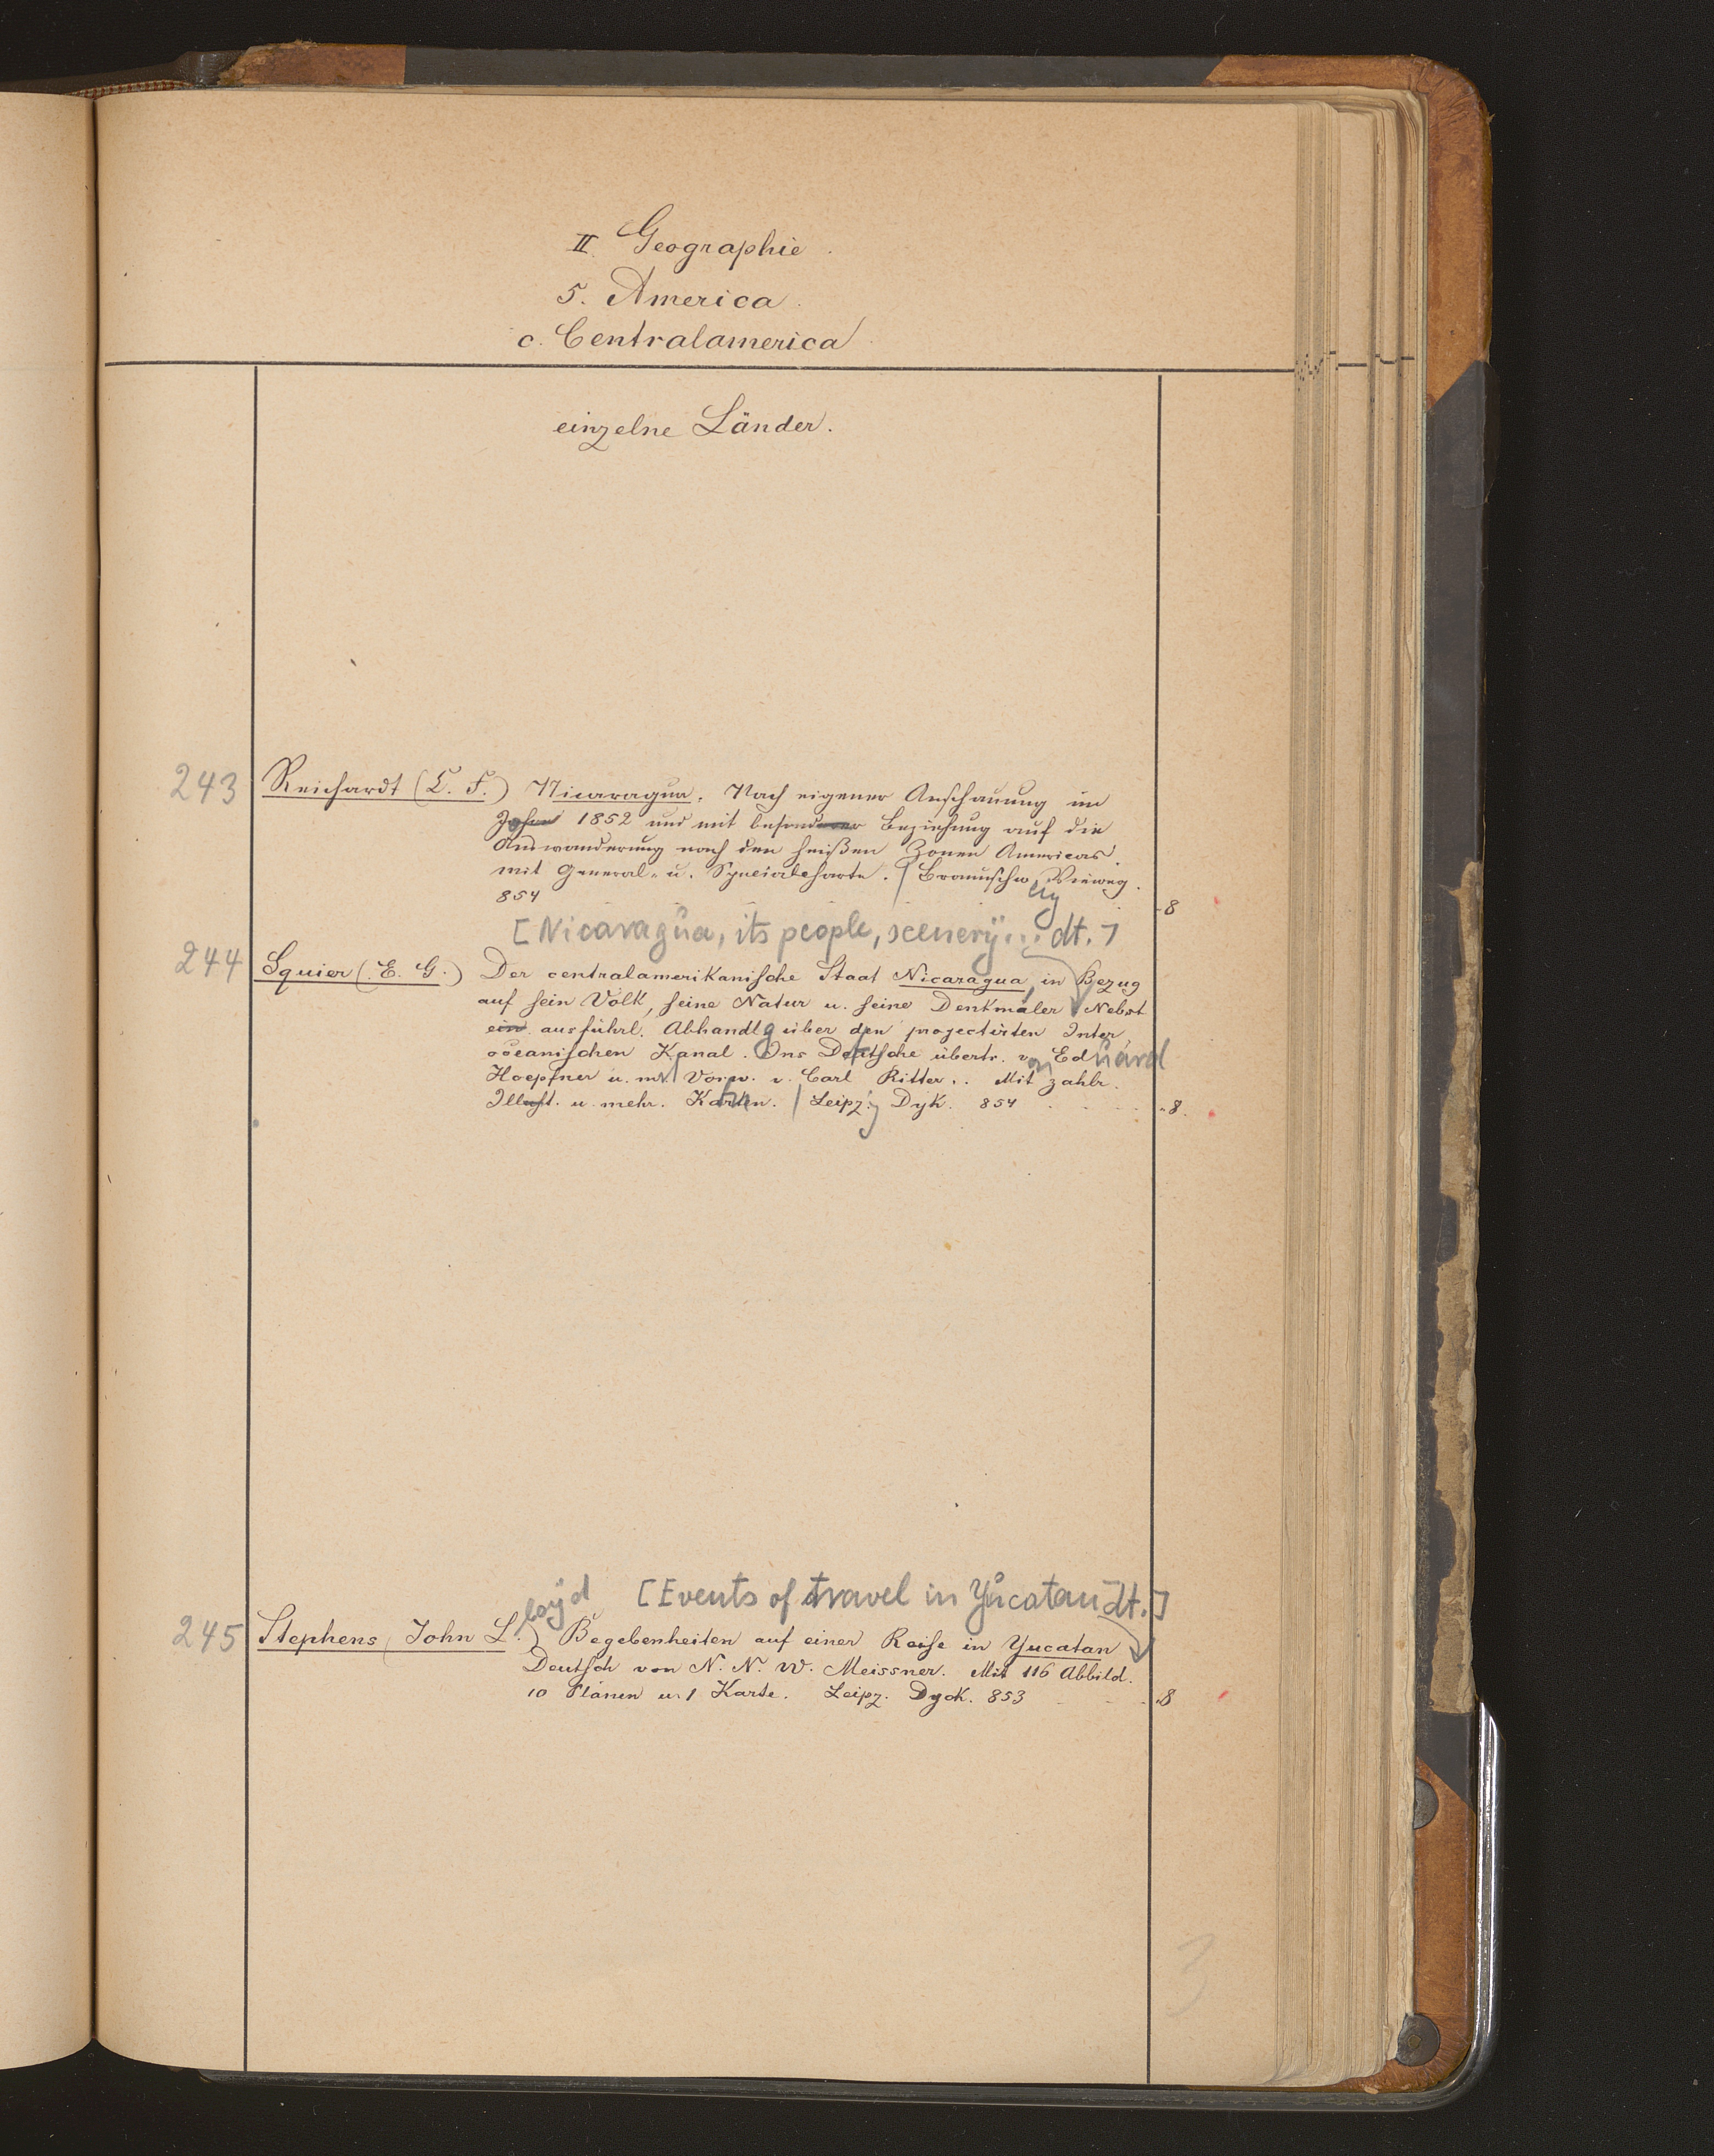 II. Geographie.
5. America.
c. Centralamerica
einzelne Länder.
243 Reichardt (C. F.) Nicaragua. Nach eigener Anschauung im
Jahre 1852 und mit besonderer Beziehung auf die
Auswanderung nach den heißen Zonen Americas.
mit General- u. Specialcharte. | Braunschweig Vieweg.
854 8
[Nicaragua, its people, scenery... dt.]
244 Squier (E. G.) Der centralamerikanische Staat Nicaragua, in Bezug
auf sein Volk, seine Natur u. seine Denkmäler Nebst
ein. ausführl. Abhandlg über den projectirten Inter
oceanischen Kanal. Ins Deutsche übertr. von Eduard
Hoepfner u. m. Vorw. v. Carl Ritter. Mit zahlr.
Illust. u. mehr. Karten. | Leipzig Dyk. 854 8.
loyd [Events of travel in Yucatan dt.]
245 Stephens (John L.) Begebenheiten auf einer Reise in Yucatan
Deutsch von N. N. W. Meissner. Mit 116 Abbild.
10 Plänen u. 1 Karte. Leipz. Dyck. 853 8